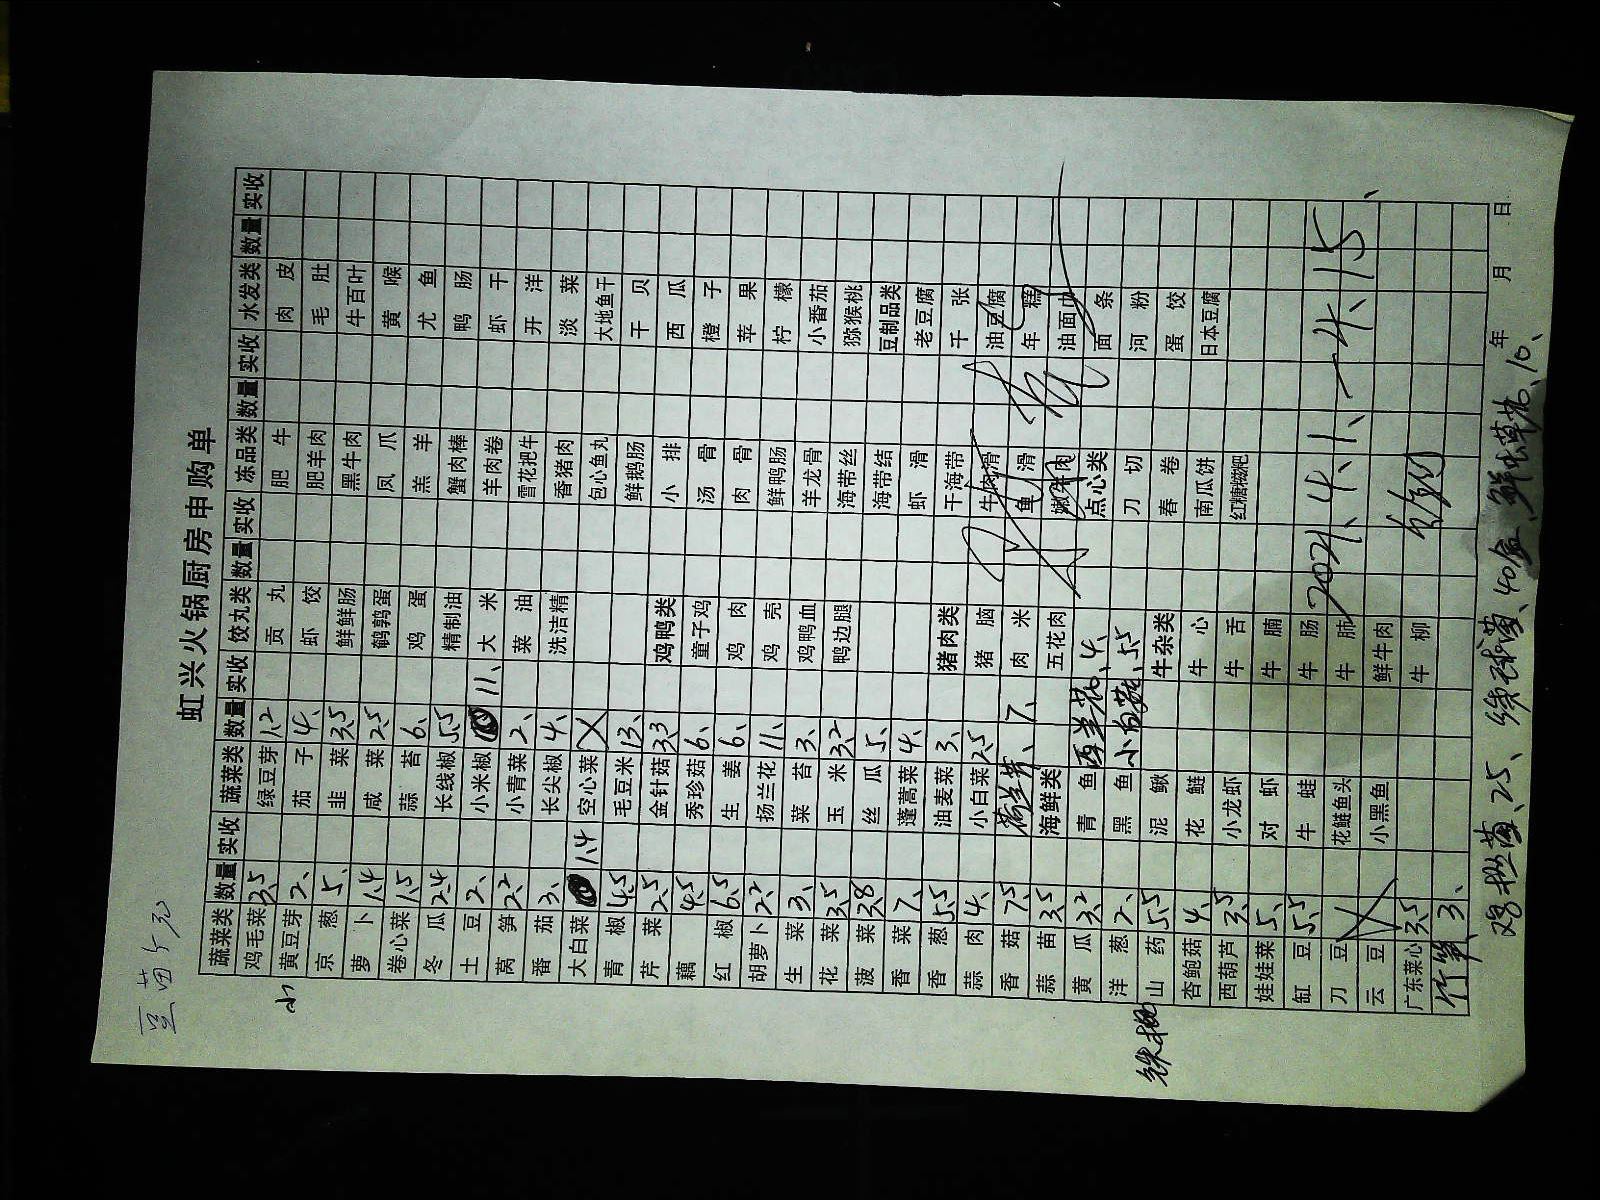 豆苗
虹兴火锅厨房申购单
蔬菜类 数量 实收 蔬菜类 数量 实收 饺丸类 数量 实收 冻品类 数量 实收 水发类 数量 实收
小 鸡毛菜 3.5 绿豆芽 1.2 贡丸 肥牛 肉皮
黄豆芽 2、 茄子 4、 虾饺 肥羊肉 毛肚
京葱 5、 韭菜 3.5 鲜鲜肠 黑牛肉 牛百叶
萝卜 1.4 咸菜 2.5 鹌鹑蛋 凤爪 黄喉
卷心菜 1.5 蒜苔 6、 鸡蛋 羔羊 尤鱼
冬瓜 2.4 长线椒 5.5 精制油 蟹肉棒 鸭肠
土豆 2、 小米椒 11、 大米 羊肉卷 虾干
莴笋 2.2 小青菜 2、 菜油 雪花把牛 开洋
番茄 3、 长尖椒 4、 洗洁精 香猪肉 淡菜
大白菜 1.4 空心菜 包心鱼丸 大地鱼干
青椒 4.5 毛豆米 13、 鲜鹅肠 干贝
芹菜 2.5 金针菇 3.3 鸡鸭类 小排 西瓜
藕 4.5 秀珍菇 6、 童子鸡 汤骨 橙子
红椒 6.5 生姜 6、 鸡肉 肉骨 苹果
胡萝卜 2.2 扬兰花 11、 鸡壳 鲜鸭肠 柠檬
生菜 3、 菜苔 3、 鸡鸭血 羊龙骨 小番茄
花菜 3.5 玉米 3.2 鸭边腿 海带丝 猕猴桃
菠菜 3.8 丝瓜 5、 海带结 豆制品类
香菜 7、 蓬蒿菜 4、 虾滑 老豆腐
香葱 5.5 油麦菜 3、 猪肉类 干海带 千张
蒜肉 4、 小白菜 2.5 猪脑 牛肉滑 油豆腐
香菇 7.5 7、 肉米 鱼滑 年糕
蒜苗 3.5 海鲜类 五花肉 嫩牛肉 油面巾
黄瓜 3.2 青鱼 西兰花、4、 点心类 面条
洋葱 2、 黑鱼 5.5 刀切 河粉
铁棍 山药 5.5 泥鳅 牛杂类 春卷 蛋饺
杏鲍菇 4、 花鲢 牛心 南瓜饼 日本豆腐
西葫芦 3.5 小龙虾 牛舌 红糖糍粑
娃娃菜 5、 对虾 牛腩
缸豆 5.5 牛蛙 牛肠
刀豆 花鲢鱼头 牛肺 2021、4、1、一4、15、
云豆 小黑鱼 鲜牛肉
广东菜心 3.5 牛柳
竹笋 3、
年 月 日
25、 40盒、鲜虫草花、10、